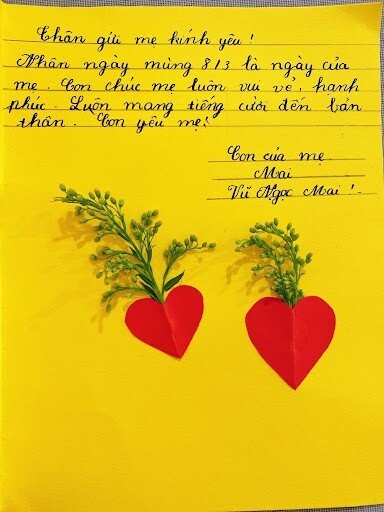 Thân gửi mẹ kính yêu !
Nhân ngày mùng 8/3 là ngày của
mẹ. Con chúc mẹ luôn vui vẻ, hạnh
phúc. Luôn mang tiếng cười đến bản
thân. Con yêu mẹ!
Con của mẹ
Mai
Vũ Ngọc Mai !.